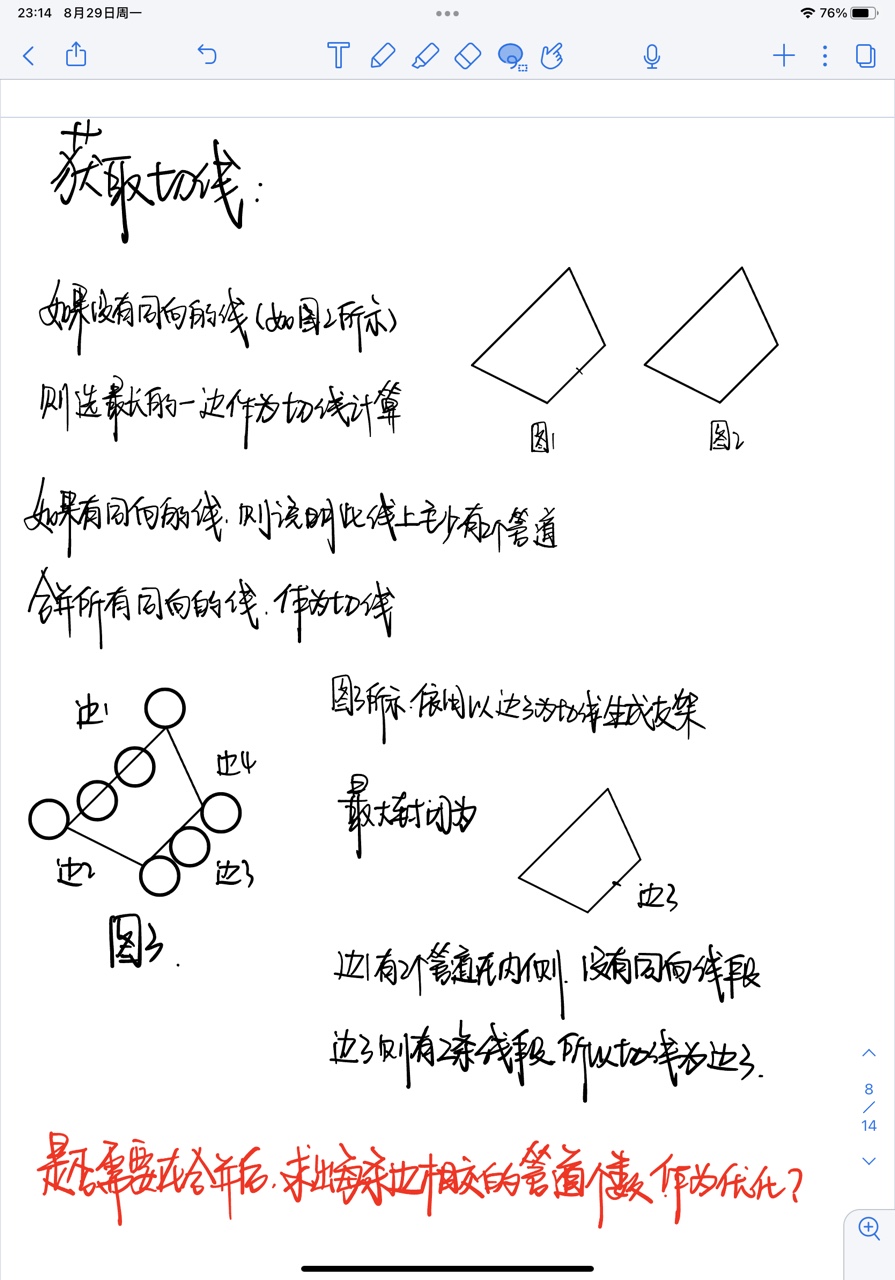 23:14 8月29日周一
76%
获取切线:
如果没有同向的线(如图2所示)
则选最长的一边作为切线计算
图1
图2
如果有同向的线.则说明此线上至少有2个管道
合并所有同向的线.作为切线
边1
边4
边2
边3
图3.
图3所示:依旧以边3为切线生成支架
最大封闭为
边3
边1有2个管道在内侧.没有同向线段
边3则有2条线段.所以切线为边3.
是否需要在合并后.求出每条边相交的管道个数.作为优化?
8
/
14